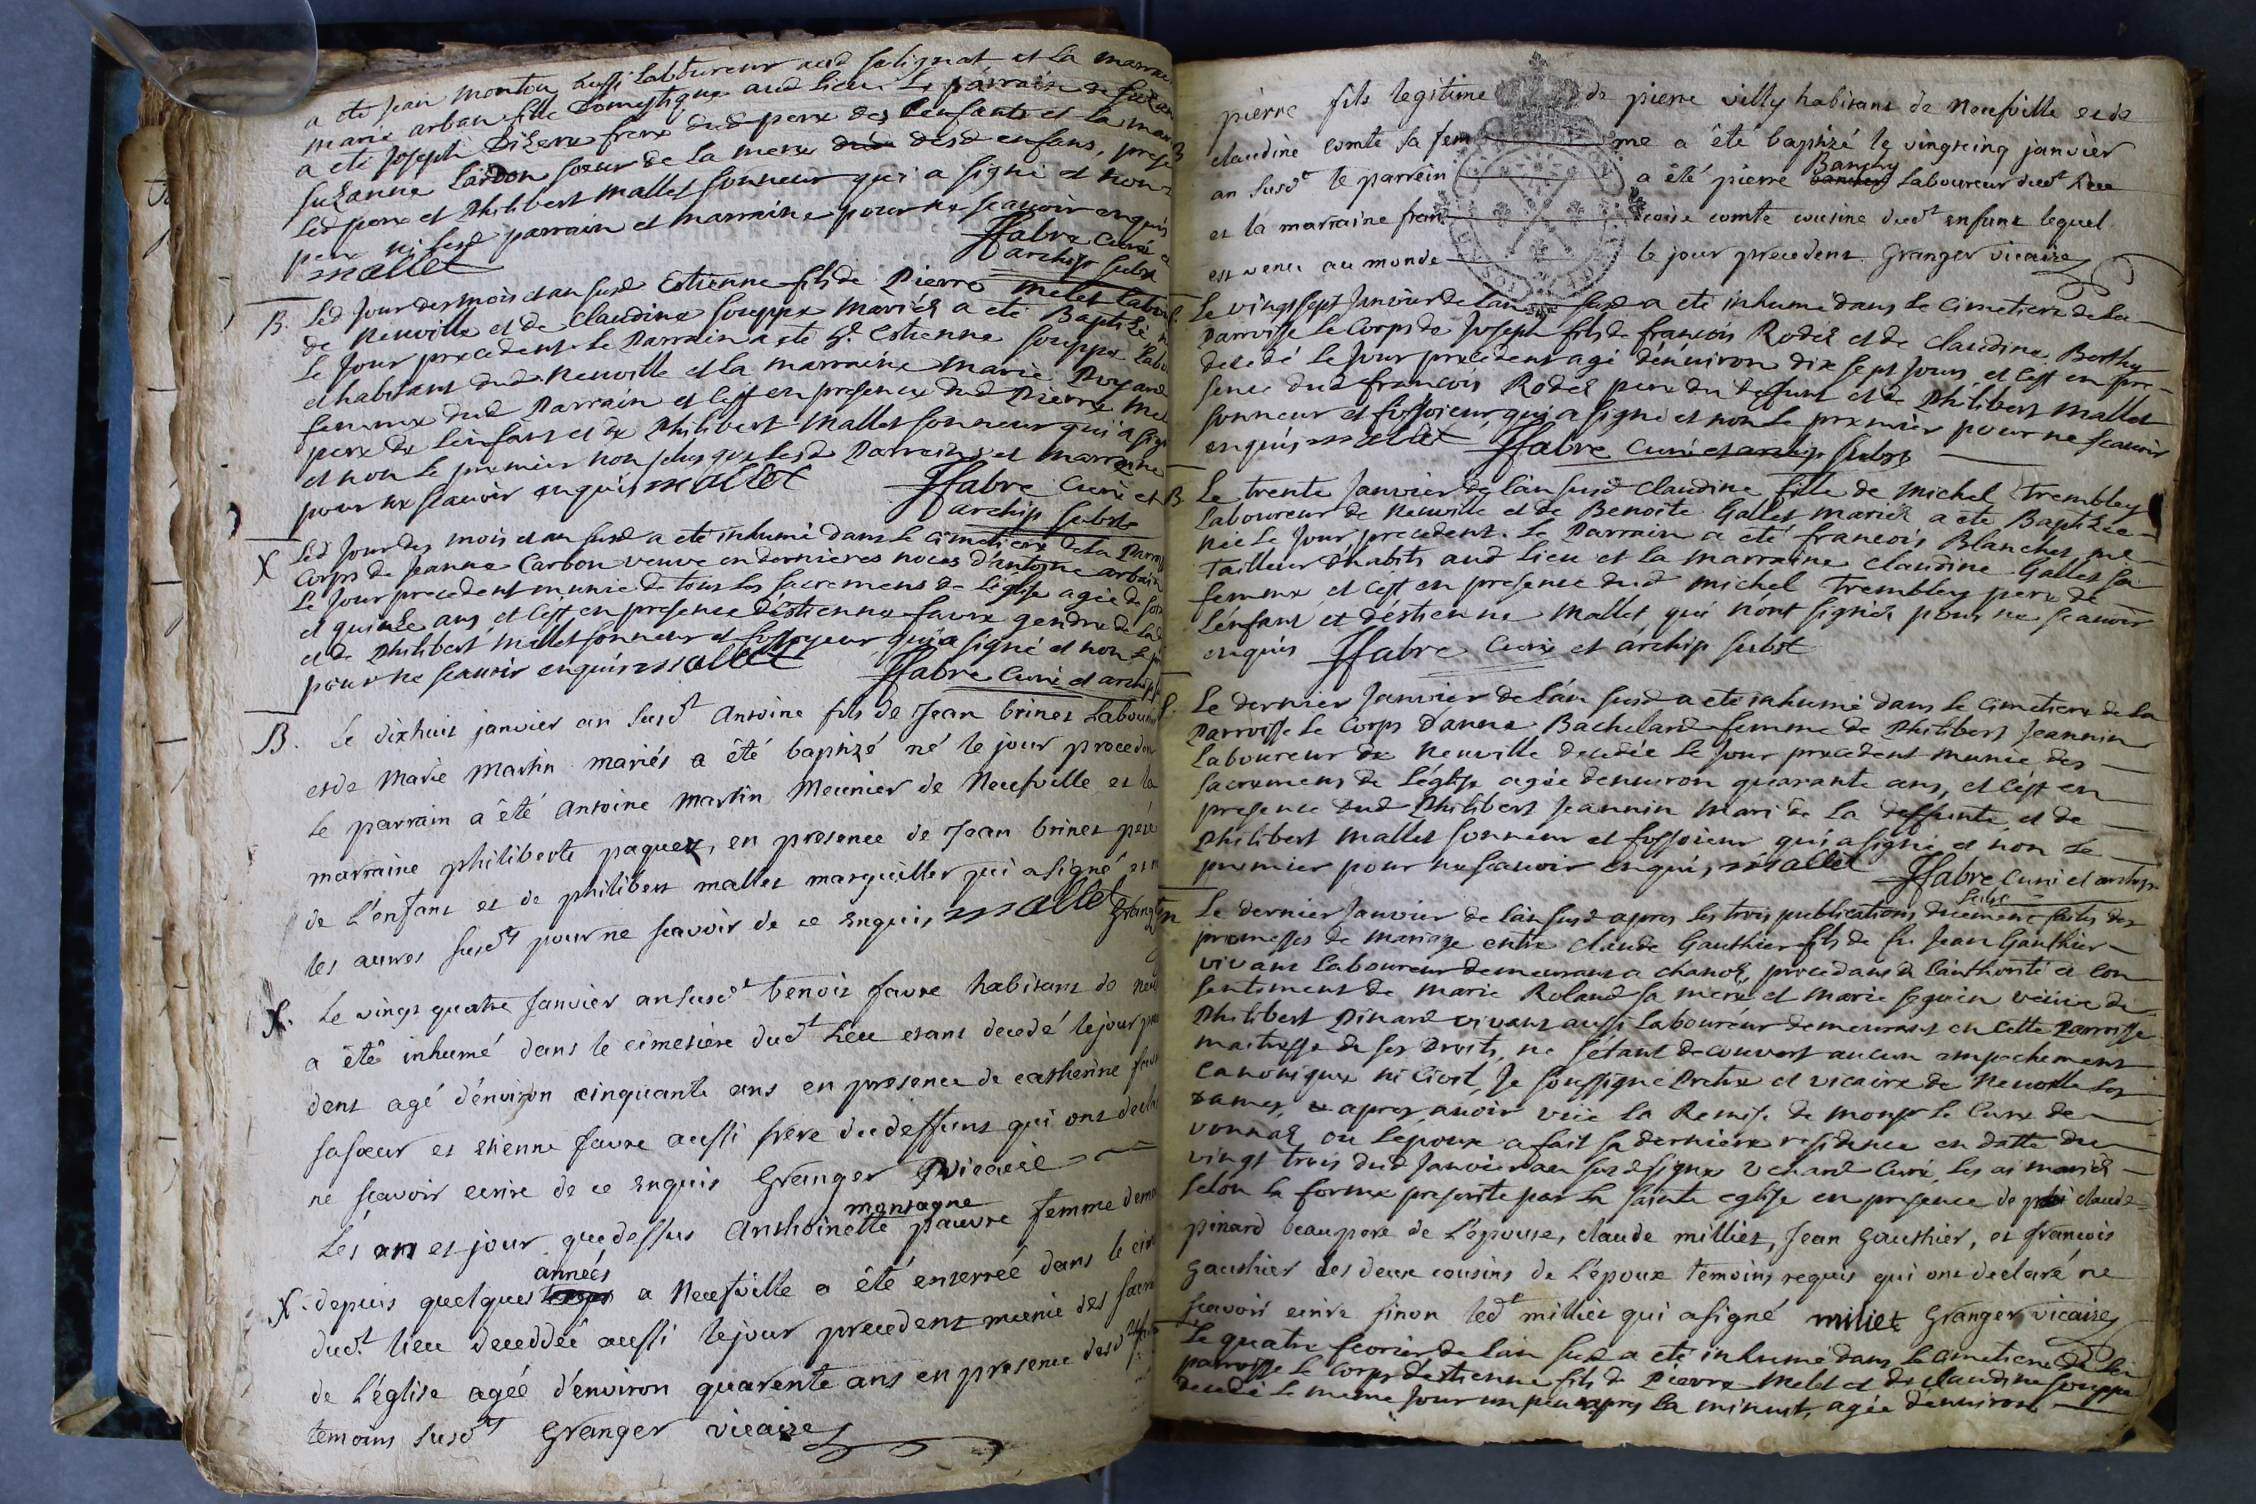 a ete Jean Monton aussi Laboureur aud Solignat et La marrai
marie arban fille domestique aud Lieu. Le parrain de Suzan
a ete Joseph Dizera frere dud pere des enfants et la mar
Suzanne Lardon soeur de la mere desd enfans, prese
Led pere et Philibert mallet sonneur qui a signé et non
pere ni lesd parrain et marraine pour ne scavoir enquis
mallet ffabre curé et
archip subst
B. Led jour des mois et an susd Estienne fils de Pierre Melet Labour
de Neuville et de Claudine Souppe mariés a ete Baptizé n
Le jour precedent. Le Parrain a ete Sr. Estienne Souppe Labo
et habitant dud Neuville et la marraine Marie Poyard
femme dud Parrain et c'est en presence dud Pierre Mel
pere de l'enfant et de Philibert Mallet sonneur qui a sign
et non le premier non plus que lesd Parrain et marraine
pour ne scavoir enquis mallet ffabre curé et
archip subst
X Led jour des mois et an susd a ete inhumé dans le cimetiere de La Parro
Corps de Jeanne Carbon veuve en dernieres noces d'antoine arban
Le jour precedent munie de tous les sacremens de L'eglise agée de
et quinze ans et c'est en presence d'Estienne favre gendre de lad
et de Philibert Mallet sonneur et fossoyeur qui a signé et non le p
pour ne scavoir enquis mallet ffabre curé et archip
B. Le dixhuit janvier an susdt Antoine fils de Jean brinet Laboure
et de Marie Martin mariés a êté baptizé né le jour preceden
Le parrain a êté Antoine Martin Meunier de Neufville et la
marraine philiberte paquet, en presence de Jean brinet pere
de L'enfant et de philibert mallet marguillier qui a signé, et n
les autres susdts pour ne scavoir de ce enquis mallet Grang
X. Le vingt quatre Janvier an susdt benoit favre habitant de neuf
a êtê inhumé dans le cimetière dudt Lieu etant decedé le jour pre
dent agé d'environ cinquante ans en presence de catherine favr
sa soeur et etienne favre aussi frere du deffunt qui ont decla
ne scavoir ecrire de ce enquis Granger Vicaire
montagne
Les an et jour que dessus Anthoinette pauvre femme demeu
années
X. depuis quelques a Neufville a êté enterreé dans le cim
dudt. lieu deceddeé aussi le jour precedent munie des sacre
de L'église ageé d'environ quarente ans en presence desdts
temoins susdts Granger vicaire
pierre fils legitime de pierre villy habitant de Neufville et de
claudine comte sa fem me a êté baptizé le vingtcinq janvier
Banchy
an susdt le parrein a êté pierre Laboureur dudt Lieu
et la marraine fran coise comte cousine dudt enfant lequel
est venu au monde le jour precedent. Granger vicaire
Le vingt sept Janvier de l'an susd a ete inhumé dans le Cimetiere de la
Parroisse le Corps de Joseph fils de francois Rodet et de Claudine Berthy
decedé le jour precedent agé denviron dix sept jours et c'est en pre-
sence dud francois Rodet pere du deffunt et de Philibert Mallet
sonneur et fossoieur qui a signé et non le premier pour ne scavoir
enquis mallet ffabre curé et archip subst
B Le trente Janvier de l'an susd Claudine fille de Michel Trembley
Laboureur de Neuville et de Benoite Gallet mariés a ete Baptizée
née Le jour precedent. Le Parrain a eté francois Blanchet me
Tailleur d'habits aud Lieu et la marraine Claudine Gallet sa
femme et c'est en presence dud Michel Trembley pere de
L'enfant et d'estienne Mallet qui n'ont signés pour ne scavoir
enquis ffabre Curé et archip subst
Le dernier Janvier de l'an susd a ete inhumé dans le Cimetiere de la
Parroisse le Corps d'anne Bachelard femme de Philibert Jeannin
Laboureur de Neuville decedée le jour precedent munie des
sacremens de l'église agée denviron quarante ans, et c'est en
presence dud Philibert Jeannin mari de la deffunte et de
Philibert Mallet sonneur et fossoieur qui a signé et non le
premier pour ne scavoir enquis mallet ffabre curé et archip
subst
Le dernier Janvier de l'an susd apres les trois publications duement faites des
promesses de mariage entre Claude Gauthier fils de fu Jean Gauthier
vivant Laboureur demeurant a chanoz, procedant de l'authorité et con
sentement de Marie Roland sa mere et Marie Seguin veuve de
Philibert Pinard vivant aussi Laboureur demeurant en cette Parroisse
maitresse de ses Droits, ne s'étant decouvert aucun empechement
canonique ni Civil, Je soussigné Pretre et vicaire de Neuville les
Dames, apres avoir veüe la Remise de Monsr le Curé de
vonnas, ou l'époux a fait sa derniere residence en datte du
vingt trois dud Janvier an susd signé Venard curé, les ai mariés
selon la forme prescrite par la Sainte eglise en presence de claude
pinard beaupere de L'epouse, claude milliet, Jean Gauthier, et francois
Gauthier les deux cousins de L'epoux temoins requis qui ont declaré ne
scavoir ecrire sinon ledt milliet qui a signé miliet Granger vicaire
Le quatre fevrier de l'an susd a eté inhumé dans le Cimetiere de la
parroisse le corps d'estienne fils de Pierre Melet et de Claudine Souppe
decedé le meme jour un peu apres la minuit, agée d'environ